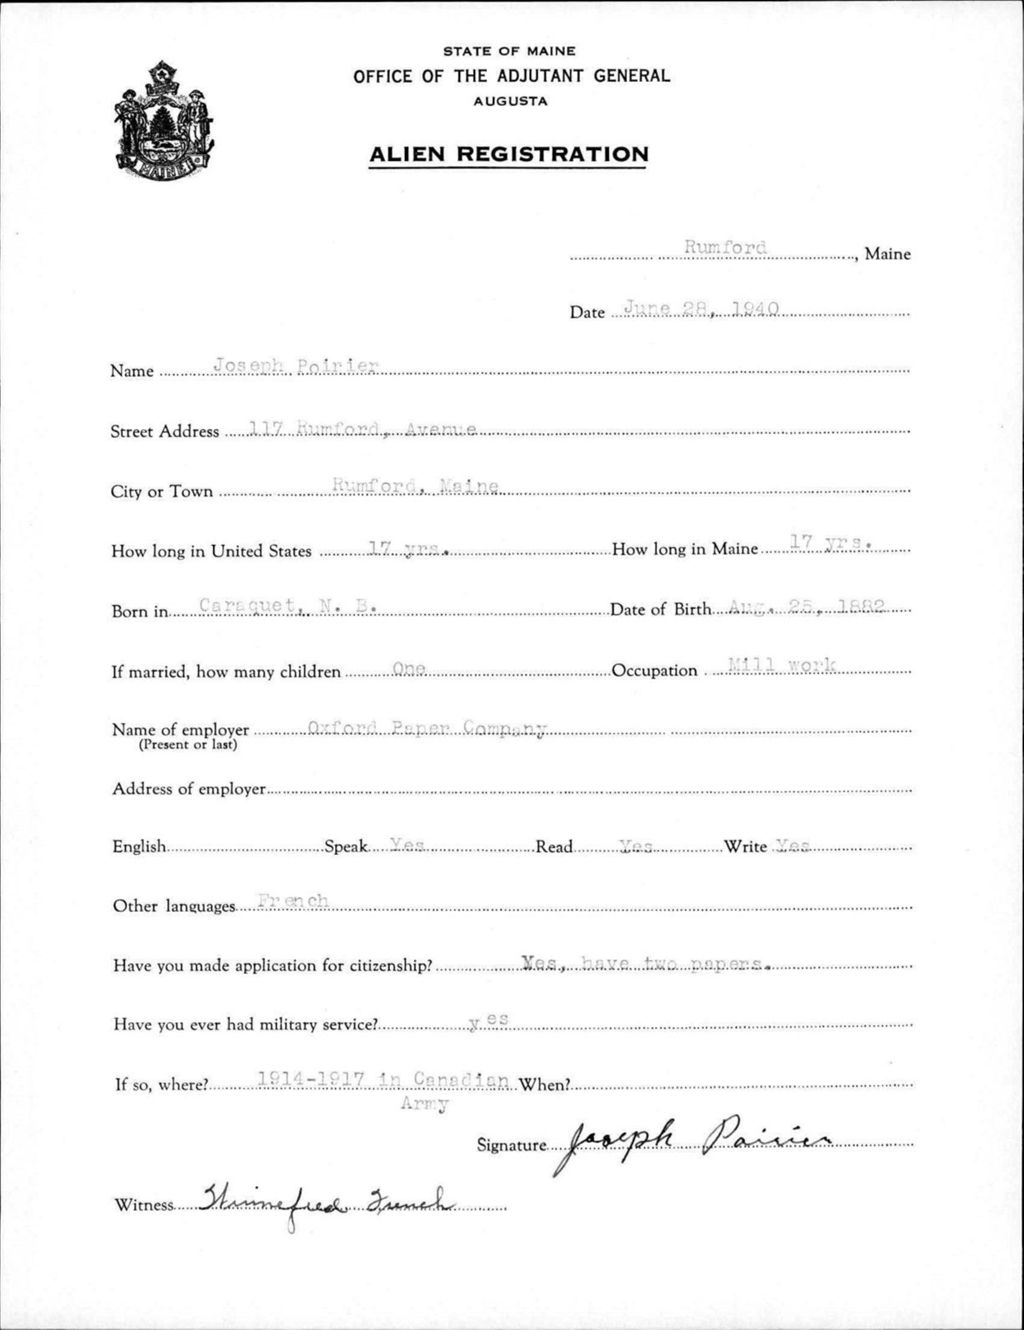 STATE OF MAINE
OFFICE OF THE ADJUTANT GENERAL
AUGUSTA
MAINE
ALIEN REGISTRATION
Rumford, Maine
Date June 28, 1940
Name Joseph Poirier
Street Address 117 Rumford, Avenue
City or Town Rumford, Maine
How long in United States 17 yrs. How long in Maine 17 yrs.
Born in Caraquet, N. B. Date of Birth Aug. 25, 1882
If married, how many children One Occupation Mill work
Name of employer Oxford Paper Company
(Present or last)
Address of employer
English Speak Yes Read Yes Write Yes
Other languages French
Have you made application for citizenship? Yes, have two papers.
Have you ever had military service? yes
If so, where? 1914-1917 in Canadian When?
Army
Signature Joseph Poirier
Witness Winnefred French